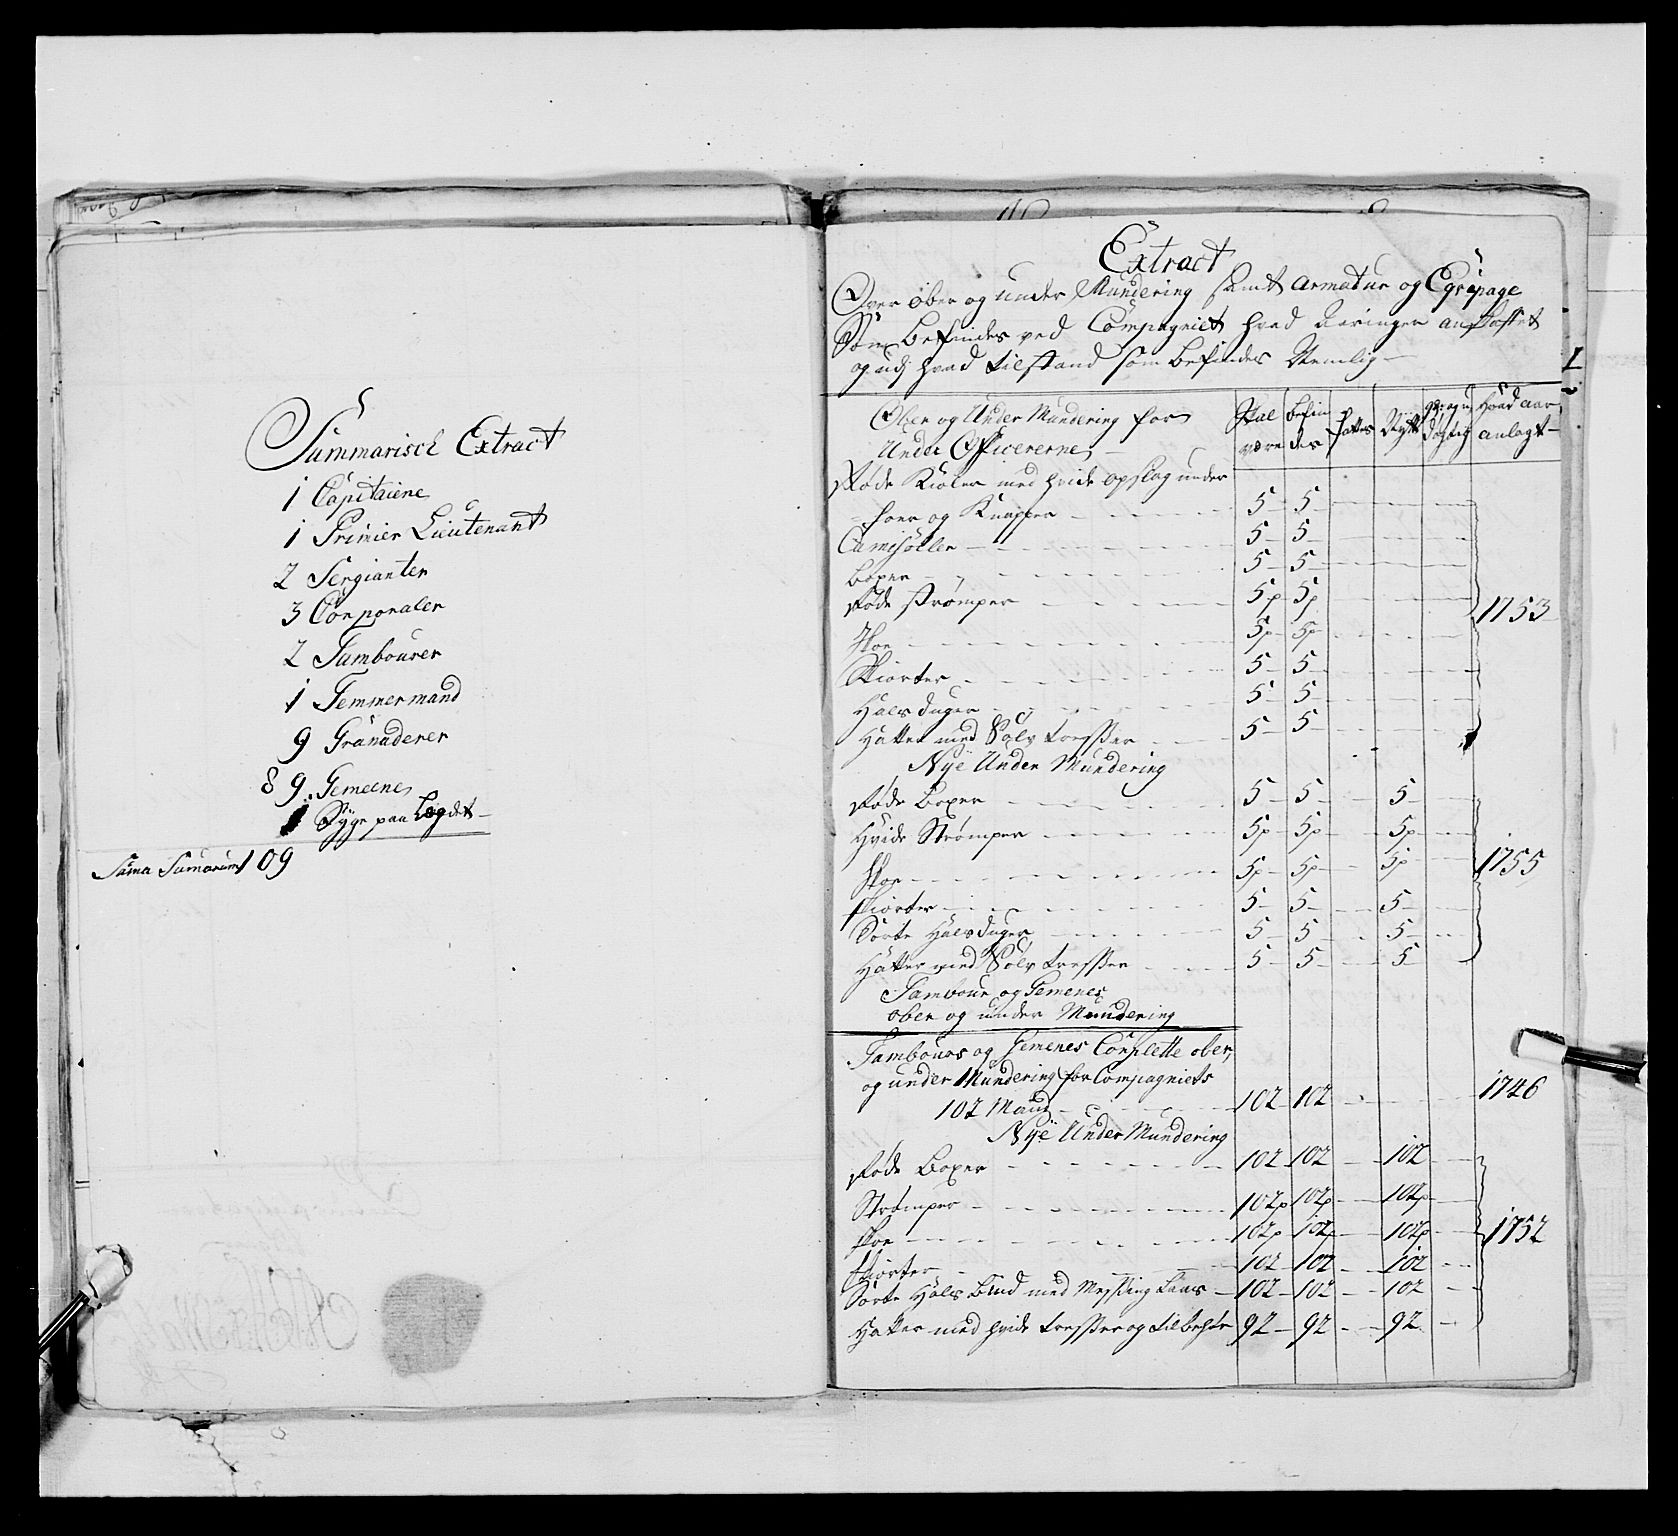 Summarisch Extract
1 Capitaine
1 Primier Lieutenant
2 Sergianter
3 Corporaler
2 Tambourer
1 Temmermand
9 Granaderer
89. Gemeene
1 Syge paa Legdet
Suma Sumarum 109
Extract
Over Ober og under Mundering samt armatur og Eqvipage
Som befindes ved Compagniet hvad Aaringer anskaffet
og udj hvad tilstand som befindes Nemlig
Ober og Under Mundering for Under Officererne | Skal være | befindes | fattes | Nytt | dygtig | Hvad aar anlagt
Røde Kioler med hvide opslag under
foer og Knapper 5 5
Camisoller 5 5
Boxer 5 5
Røde strømper 5p 5p 1753
Skoe 5p 5p
Skiorter 5 5
Halsduger 5 5
Hatter med Sølv tresser 5 5
Nye Under Mundering
Røde Boxer 5 5 5
Hvide Strømper 5p 5p 5p
Skoe 5p 5p 5p 1755
Skiorter 5 5 5
Sorte Halsduger 5 5 5
Hatter med Sølv tresser 5 5 5
Tambour og Gemenes
ober og under Mundering
Tambours og Gemenes Complette ober,
og under Mundering for Compagniets
102 Mand 102 102 1746
Nye Under Mundering
Røde Boxer 102 102 102
Strømper 102p 102p 102p
Skoe 102p 102p 102p 1752
Skiorter 102 102 102
Sorte Hals bind med Messing Laas 102 102 102
Hatter med hvide tresser og tilbehør 92 92 92